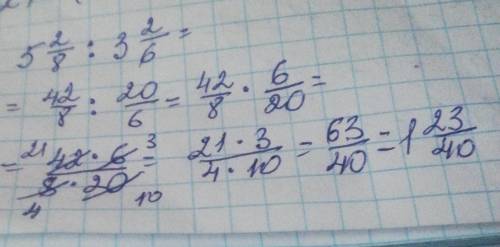 5 2/8 : 3 2/6 =
= 42/8 : 20/6 = 42/8 · 6/20 =
= 21 42 · 6 3 / 4 8 · 20 10 = 21 · 3 / 4 · 10 = 63/40 = 1 23/40